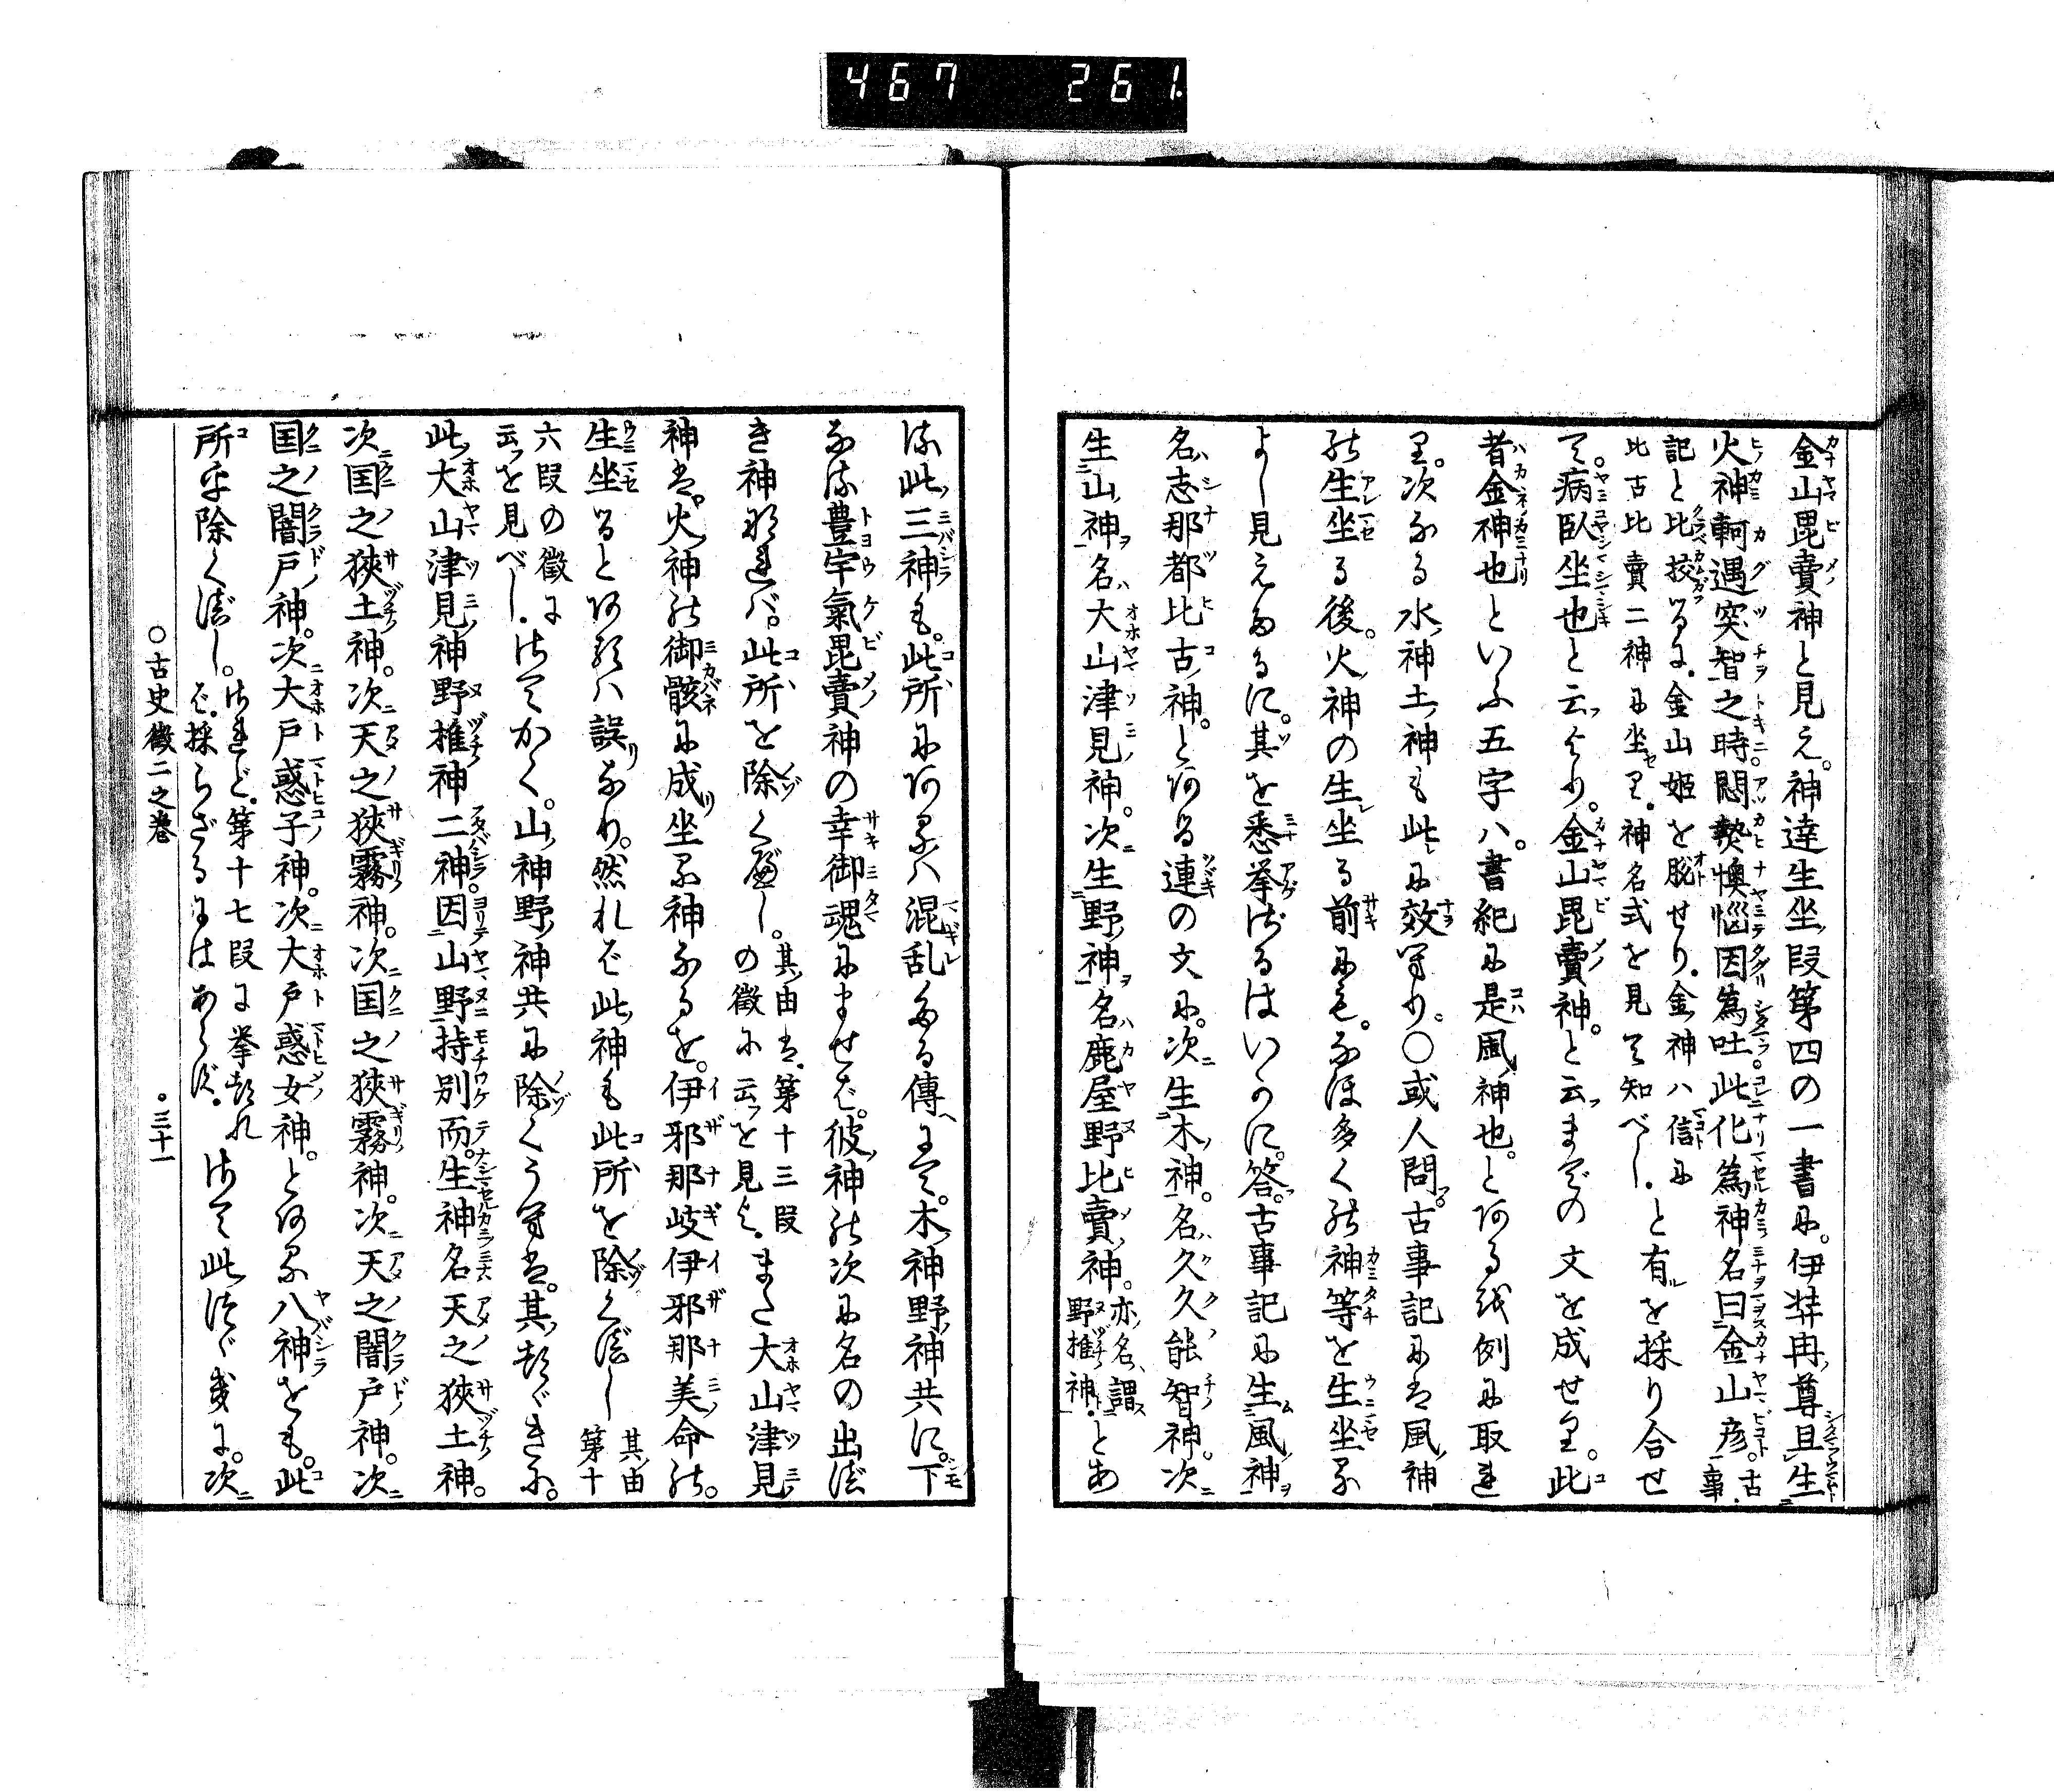 467 261.
金山毘賣神と見え。神達生坐段第四の一書に。伊弉冉尊且生
火神軻遇突智之時悶熱懊惱因為吐此化為神名曰金山彦。古事
記と比挍るに。金山姫を脱せり。金神ハ信に
比古比賣二神に坐せり。神名式を見て知べし。と有を採り合せ
て。病臥坐也と云より。金山毘賣神。と云までの文を成せり。此
者金神也といふ五字ハ。書紀に是風神也。とある例に取れ
り。次なる水神土神も此に效へり。○或人問。古事記には風神
の生坐る後。火神の生坐る前にも。なほ多くの神等を生坐る
よし見えたるに。其を悉挙ざるはいかに。答。古事記に生風神
名志那都比古神。とある連の文に。次生木神。名久久能智神。次
生山神名大山津見神。次生野神名鹿屋野比賣神。亦名謂野推神。とあ
る此三神も。此所にあるハ混乱たる傳にて。木神野神共に。下
なる豊宇氣毘賣神の幸御魂にませば。彼神の次に名の出べ
き神なれバ。此所を除くべし。其由は第十三段の徴に云を見よ。また大山津見
神は。火神の御骸に成坐る神なるを。伊邪那岐伊邪那美命の。
生坐るとあるハ誤なり。然れば此神も此所を除くべし 其由第十
六段の徴に云を見べし。さてかく。山神野神共に除くうへは。其が
此大山津見神野推神二神。因山野持別而。生神名天之狹土神。
次国之狹土神。次天之狹霧神。次国之狹霧神。次天之闇戸神。次
国之闇戸神。次大戸惑子神。次大戸惑女神。とある八神をも。此
所乎除くべし。されど。第十七段に挙たれば。採らざるにはあらず。さて此つぎに。次
○古史徴二之巻 ○三十一